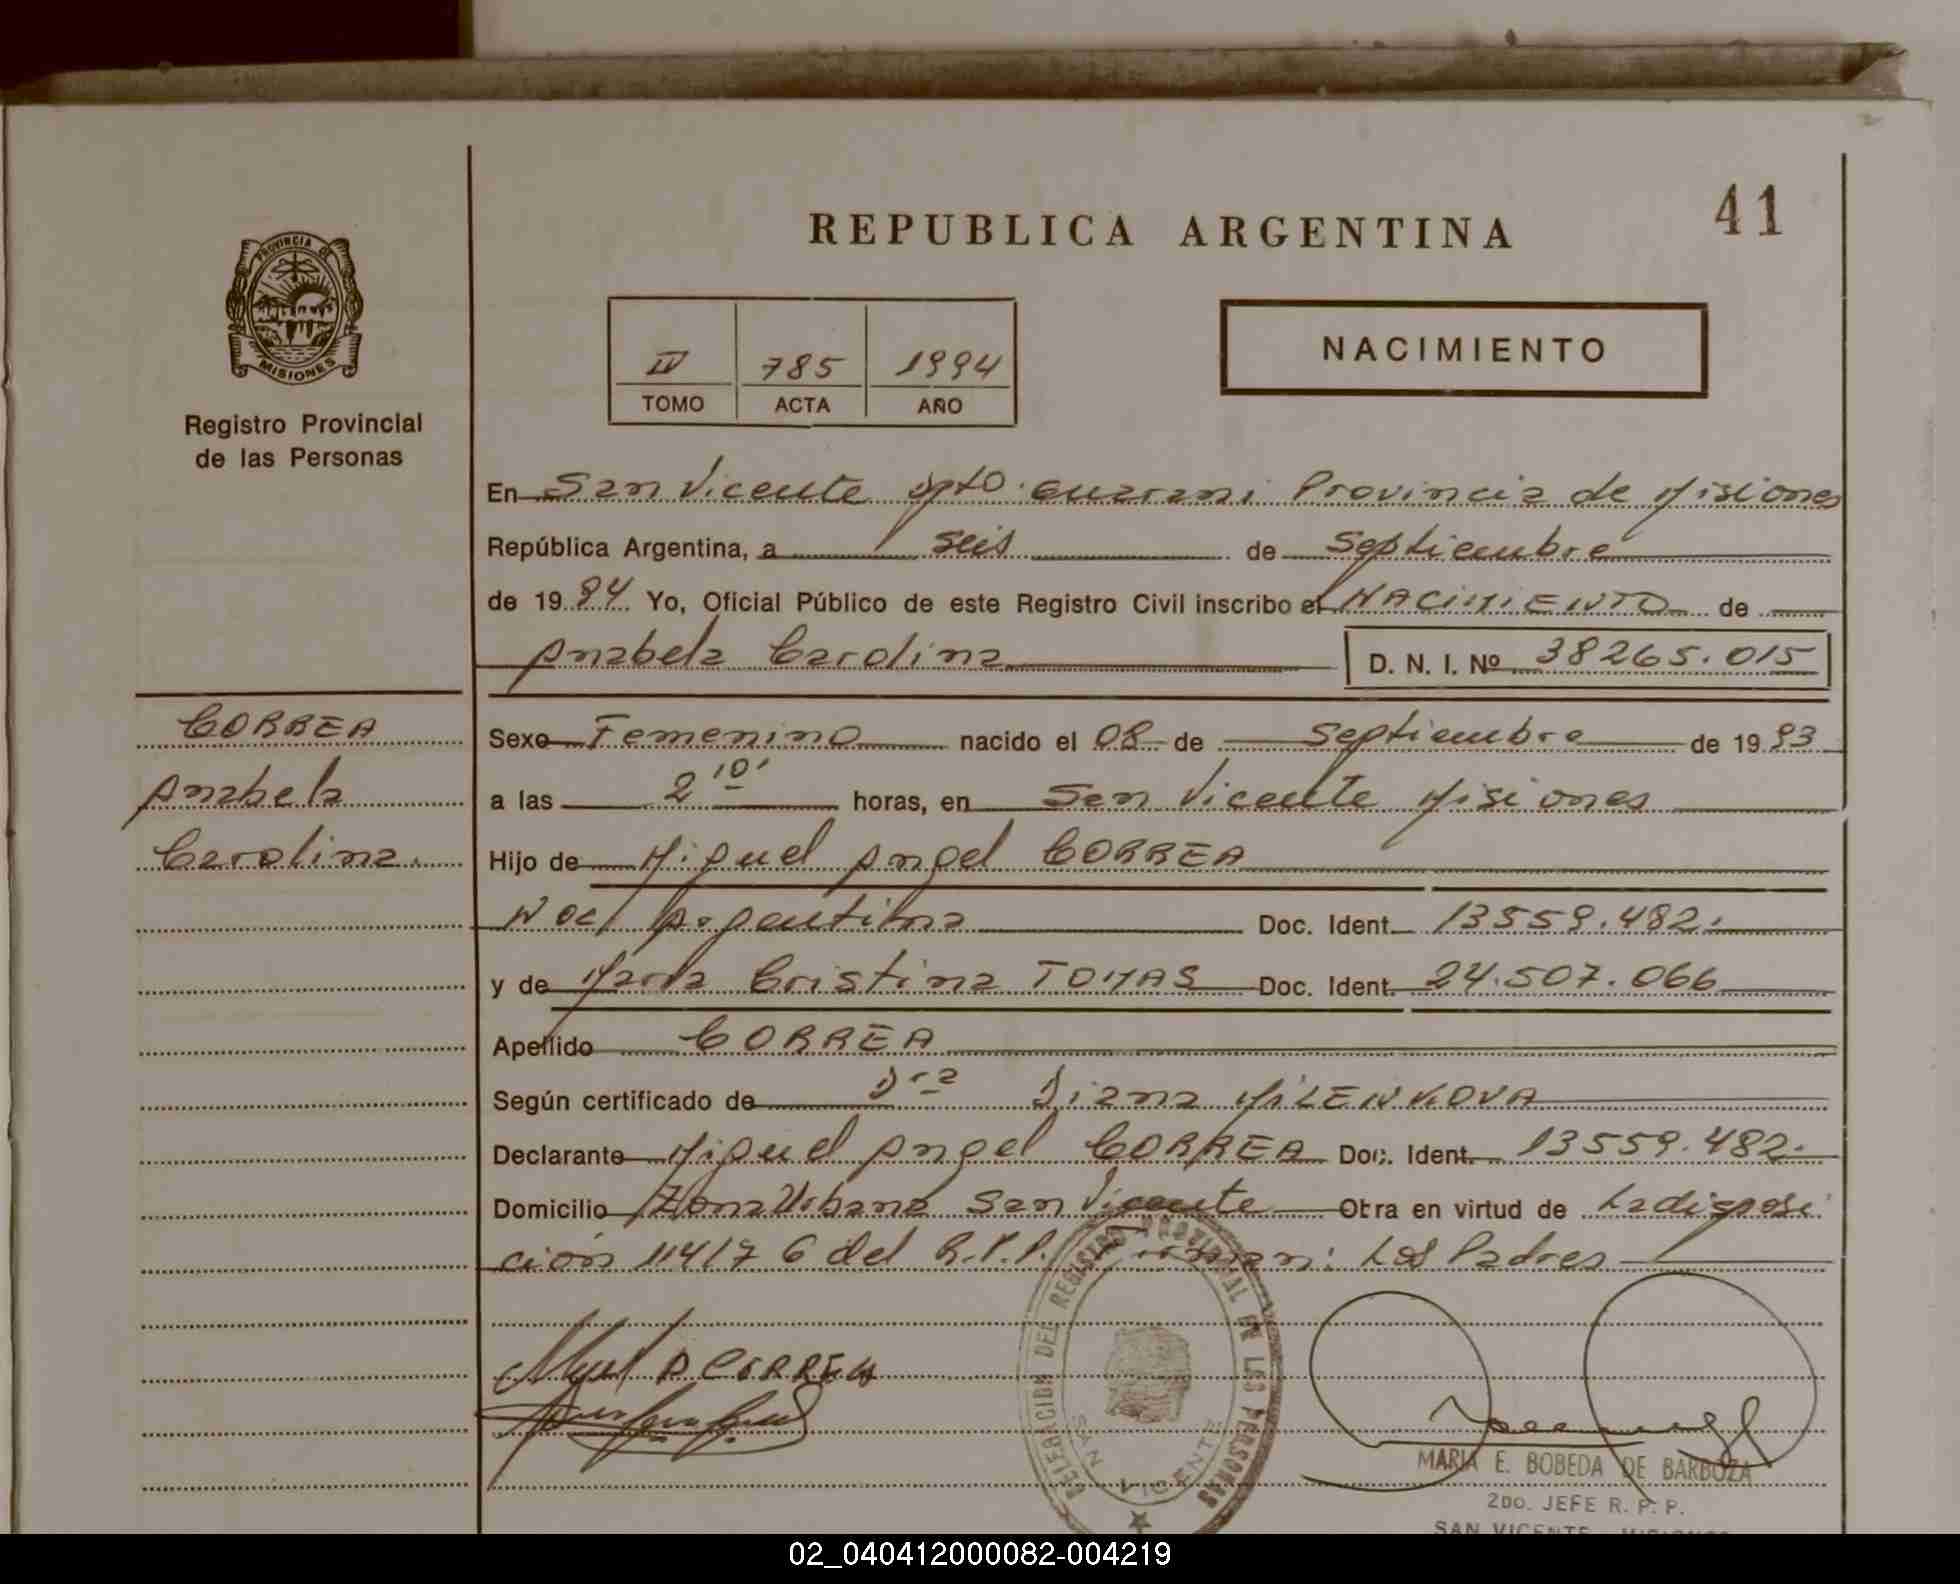 REPUBLICA ARGENTINA
41
PROVINCIA DE
MISIONES
Registro Provincial
de las Personas
IV 785 1994
TOMO ACTA AÑO
NACIMIENTO
En San Vicente Dpto. Guarani Provincia de Misiones
República Argentina, a seis de Septiembre
de 1994 Yo, Oficial Público de este Registro Civil inscribo el NACIMIENTO de
Anabela Carolina D. N. I. Nº 38265.015
CORREA
Anabela
Carolina.
Sexo Femenino nacido el 08 de Septiembre de 1993
a las 2 10' horas, en San Vicente Misiones
Hijo de Miguel Angel CORREA
Nac Argentina Doc. Ident. 13559.482.
y de Maria Cristina TOMAS Doc. Ident. 24.507.066
Apellido CORREA
Según certificado de Dra Diana MILENKOVA
Declarante Miguel Angel CORREA Doc. Ident. 13559.482.
Domicilio Zona Urbana San Vicente Otra en virtud de La disposi
ción 114/76 del R.P.P. Firman: Los Padres
Miguel A CORREA
DEL REGISTRO PROVINCIAL DE LAS PERSONAS
SAN VICENTE
MARIA E. BOBEDA DE BARBOZA
2DO. JEFE R. P. P.
SAN VICENTE - MISIONES
02_040412000082-004219